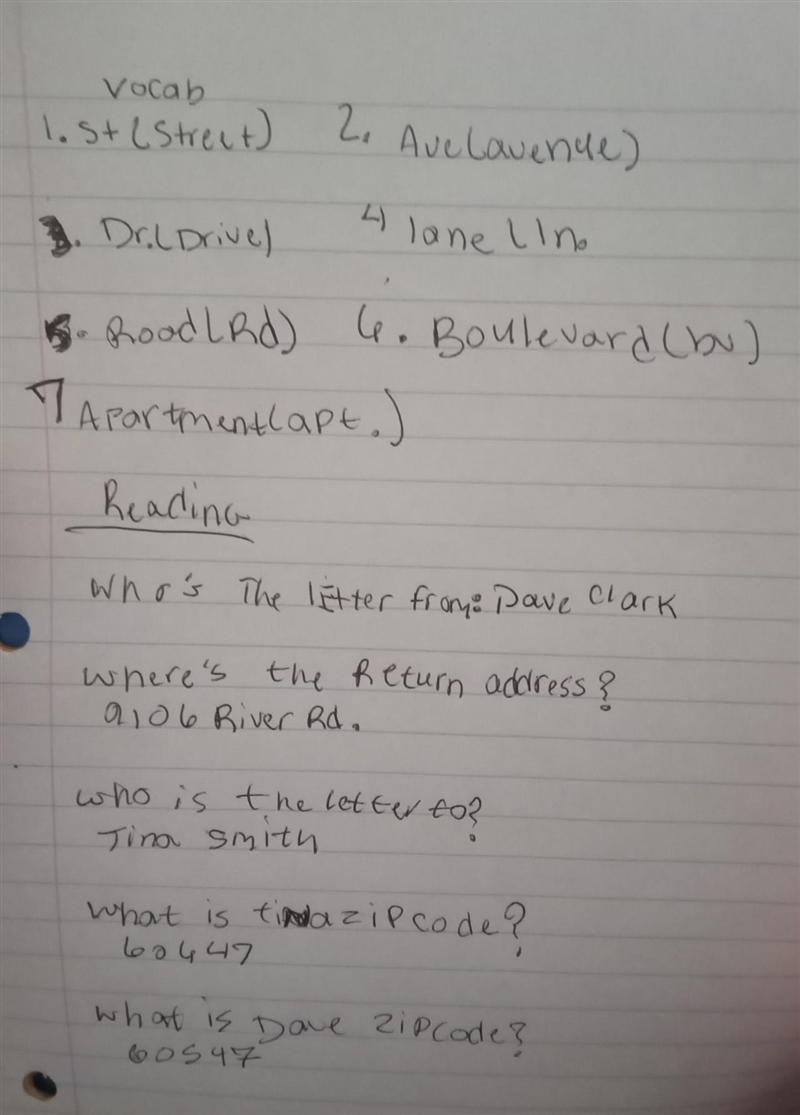 Vocab
1. St (Street) 2. Ave (avenue)
3. Dr. (Drive) 4) lane (ln.
5. Road (Rd) 6. Boulevard (bv)
7 Apartment (apt.)
Reading
Who's The letter from: Dave Clark
Where's the Return address?
9106 River Rd.
Who is the letter to?
Tina Smith
What is tina zip code?
60447
What is Dave zipcode?
60547